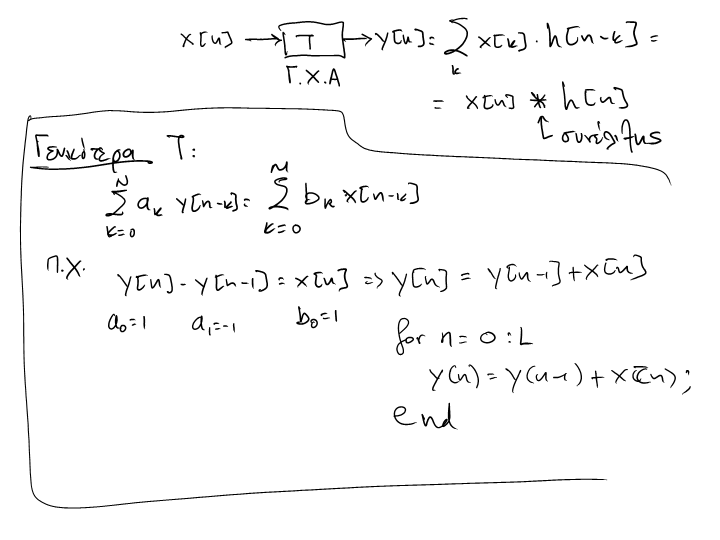 x[n] → T → y[n] = ∑ x[k] · h[n-k] =
k
Γ.Χ.Α
= x[n] * h[n]
↑ συνέλιξης
Γενικότερα T:
N M
∑ aₖ y[n-k] = ∑ bₖ x[n-k]
k=0 k=0
Π.Χ. y[n] - y[n-1] = x[n] => y[n] = y[n-1] + x[n]
a₀=1 a₁=-1 b₀=1
for n = 0 : L
y(n) = y(n-1) + x(n);
end